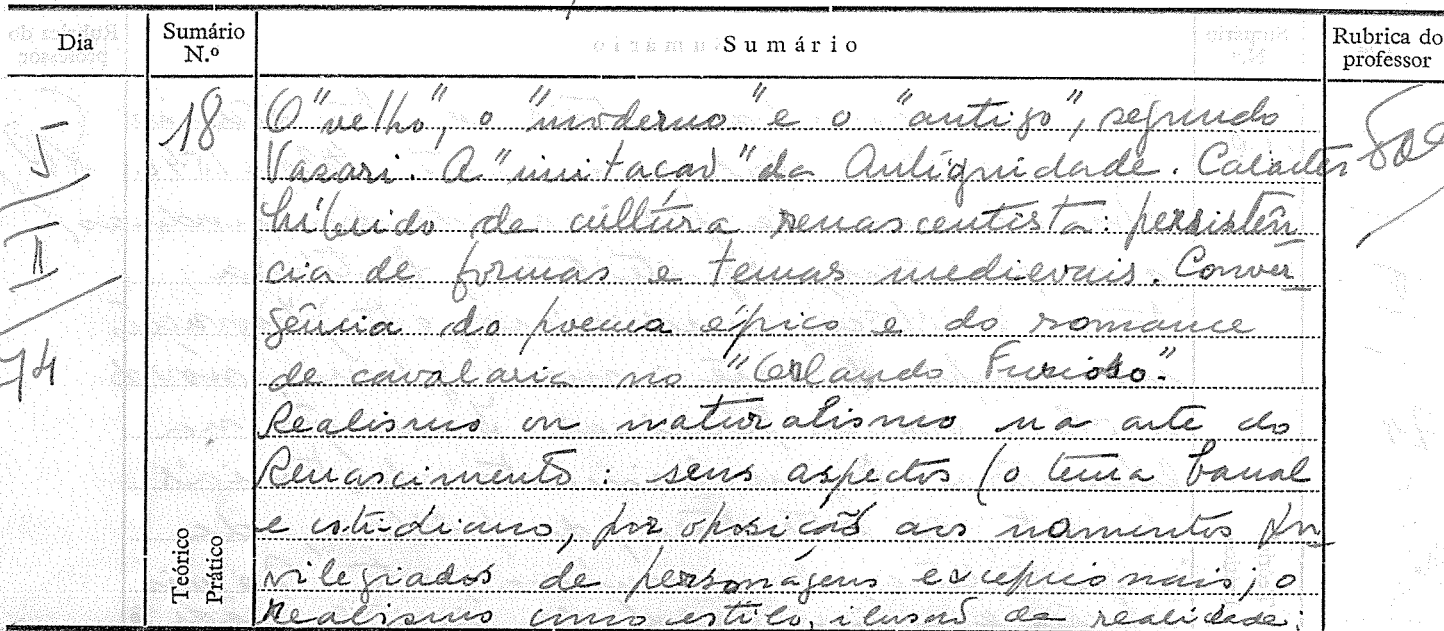 Dia Sumário N.º Sumário Rubrica do professor
18 O "velho", o "moderno" e o "antigo", segundo
Vasari. A "imitação" da Antiguidade. Carácter
híbrido da cultura renascentista: persistên
cia de formas e temas medievais. Conver
gência do poema épico e do romance
74 de cavalaria no "Orlando Furioso".
Realismo ou naturalismo na arte do
Renascimento: seus aspectos (o tema banal
e cotidiano, por oposição aos momentos pri
vilegiados de personagens excepcionais; o
Realismo como estilo, ilusão da realidade;
Teórico
Prático